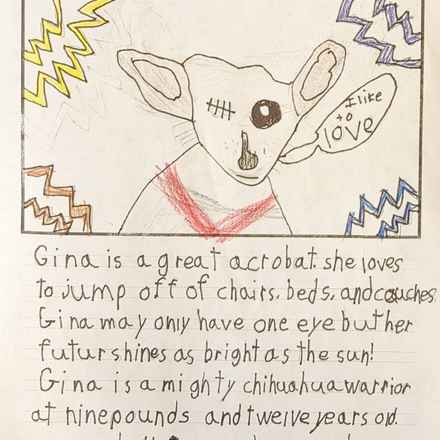 I like
to
love
Gina is a great acrobat. she loves
to jump off of chairs, beds, and couches.
Gina may only have one eye but her
futur shines as bright as the sun!
Gina is a mighty chihuahua warrior
at nine pounds and twelve years old.